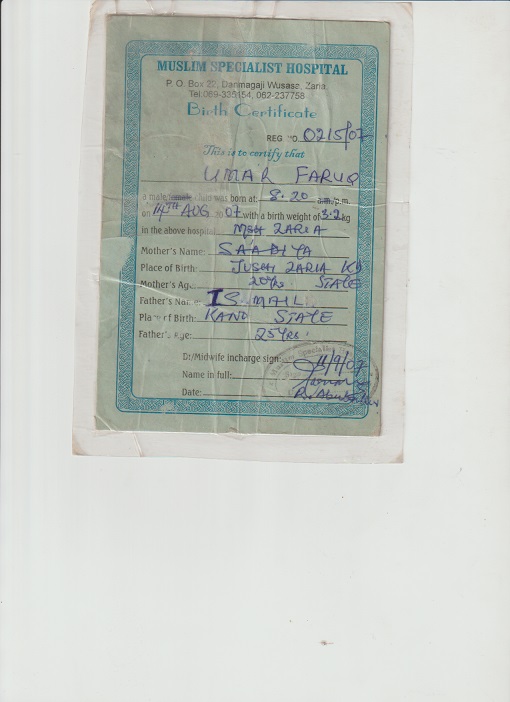 MUSLIM SPECIALIST HOSPITAL
P. O. Box 22, Danmagaji Wusasa, Zaria.
Tel: 069-335154, 062-237758
Birth Certificate
REG NO. 0215/07
This is to certify that
UMAR FARUQ
a male/female child was born at: 8.20 a.m/p.m.
on 14TH AUG 2007 with a birth weight of 3.2 kg
in the above hospital MSH ZARIA
Mother's Name: SA'ADIYA
Place of Birth: JUSHI ZARIA KD
Mother's Age 20yrs. STATE
Father's Name: ISMAIL
Place of Birth: KANO STATE
Father's Age: 25yrs.
Dr/Midwife incharge sign: 11/9/07
Name in full:
Date: